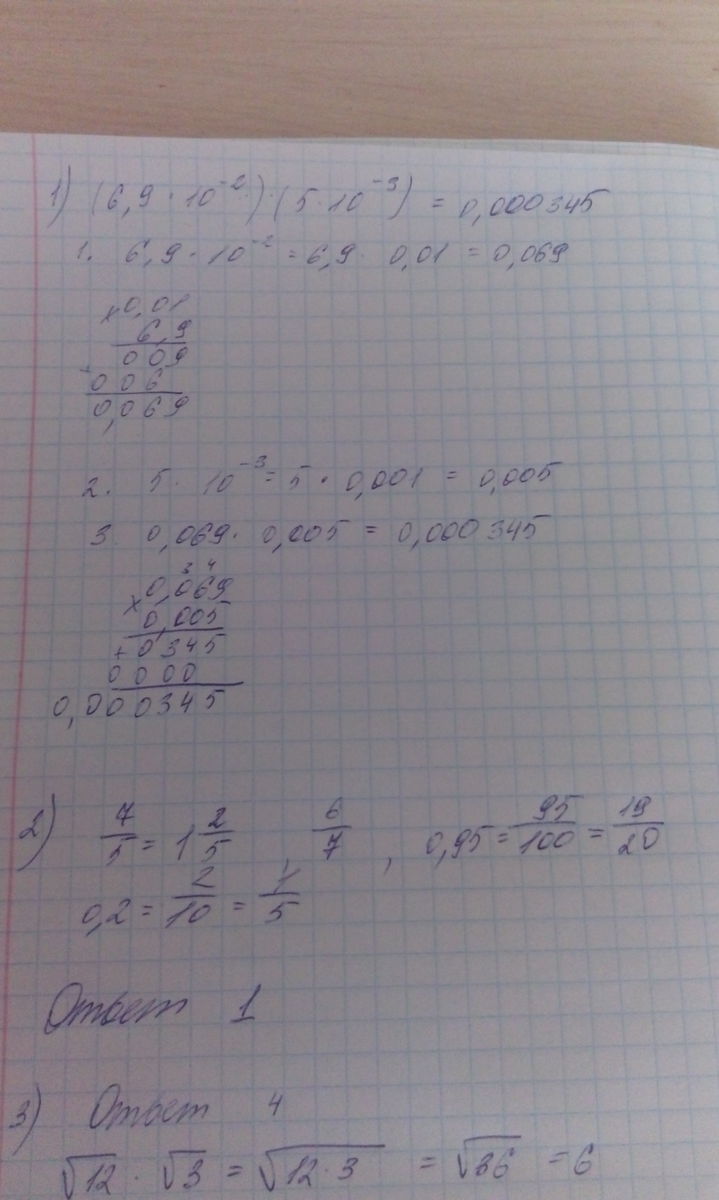 1) (6,9 · 10⁻²) · (5 · 10⁻³) = 0,000345
1. 6,9 · 10⁻² = 6,9 · 0,01 = 0,069
× 0,01
6,9
009
006
0,069
2. 5 · 10⁻³ = 5 · 0,001 = 0,005
3. 0,069 · 0,005 = 0,000345
3 4
× 0,069
0,005
+ 0345
0000
0,000345
2) 7/5 = 1 2/5, 6/7, 0,95 = 95/100 = 19/20
0,2 = 2/10 = 1/5
Ответ 1
3) Ответ 4
√12 · √3 = √12 · 3 = √36 = 6